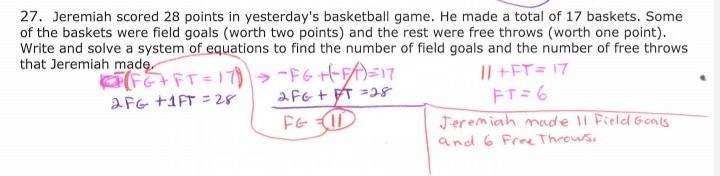 27. Jeremiah scored 28 points in yesterday's basketball game. He made a total of 17 baskets. Some
of the baskets were field goals (worth two points) and the rest were free throws (worth one point).
Write and solve a system of equations to find the number of field goals and the number of free throws
that Jeremiah made.
-(FG+FT=17) → -FG+(-FT)=17
2FG+1FT=28
2FG+FT=28
FG=11
11+FT=17
FT=6
Jeremiah made 11 Field Goals
and 6 Free Throws.